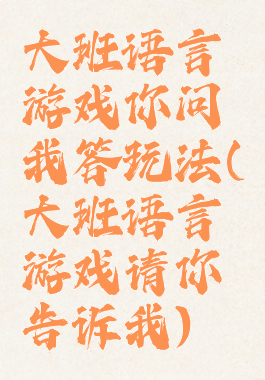 大班语言
游戏你问
我答玩法(
大班语言
游戏请你
告诉我)